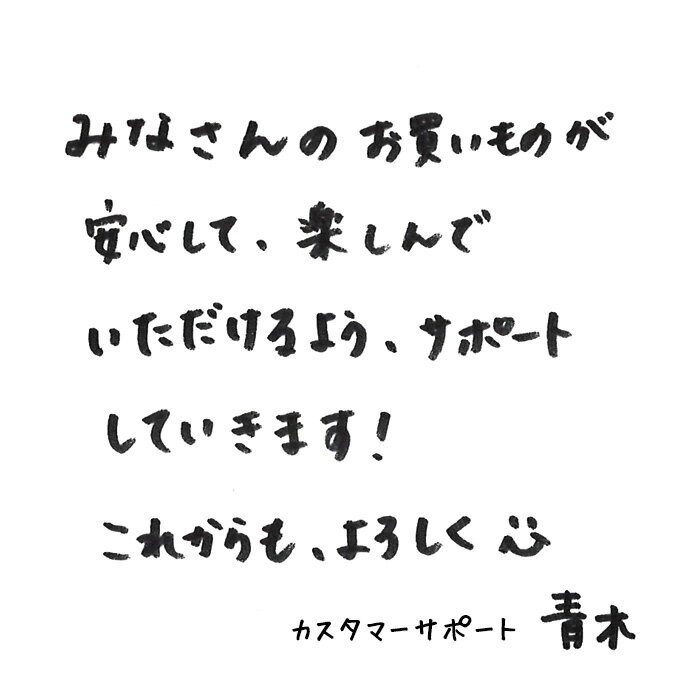 みなさんのお買いものが
安心して、楽しんで
いただけるよう、サポート
していきます!
これからも、よろしく
カスタマーサポート 青木